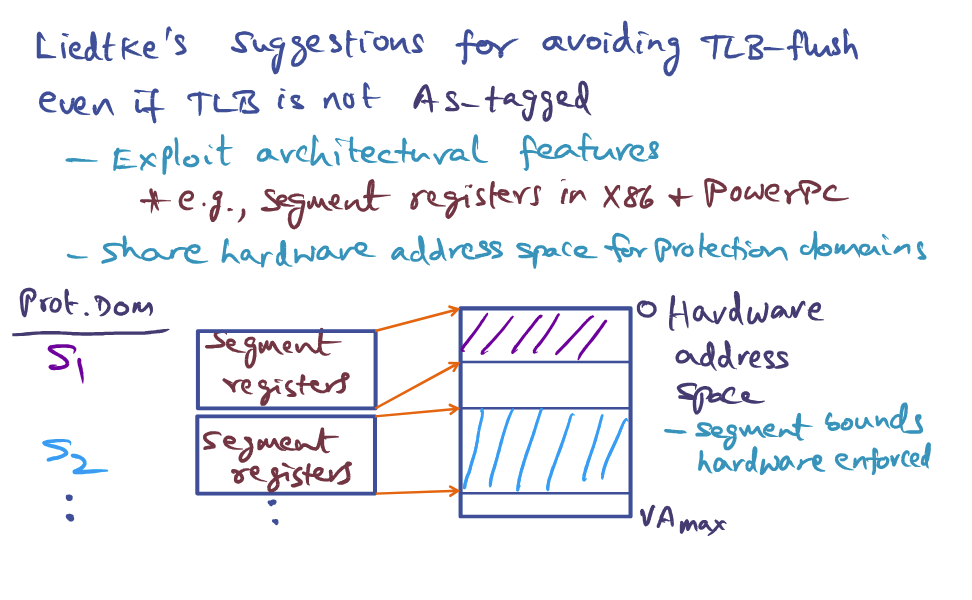 Liedtke's suggestions for avoiding TLB-flush
even if TLB is not AS-tagged
- Exploit architectural features
* e.g., segment registers in x86 + PowerPC
- share hardware address space for protection domains
Prot. Dom
S1
segment
registers
S2
segment
registers
0 Hardware
address
space
- segment bounds
hardware enforced
VAmax